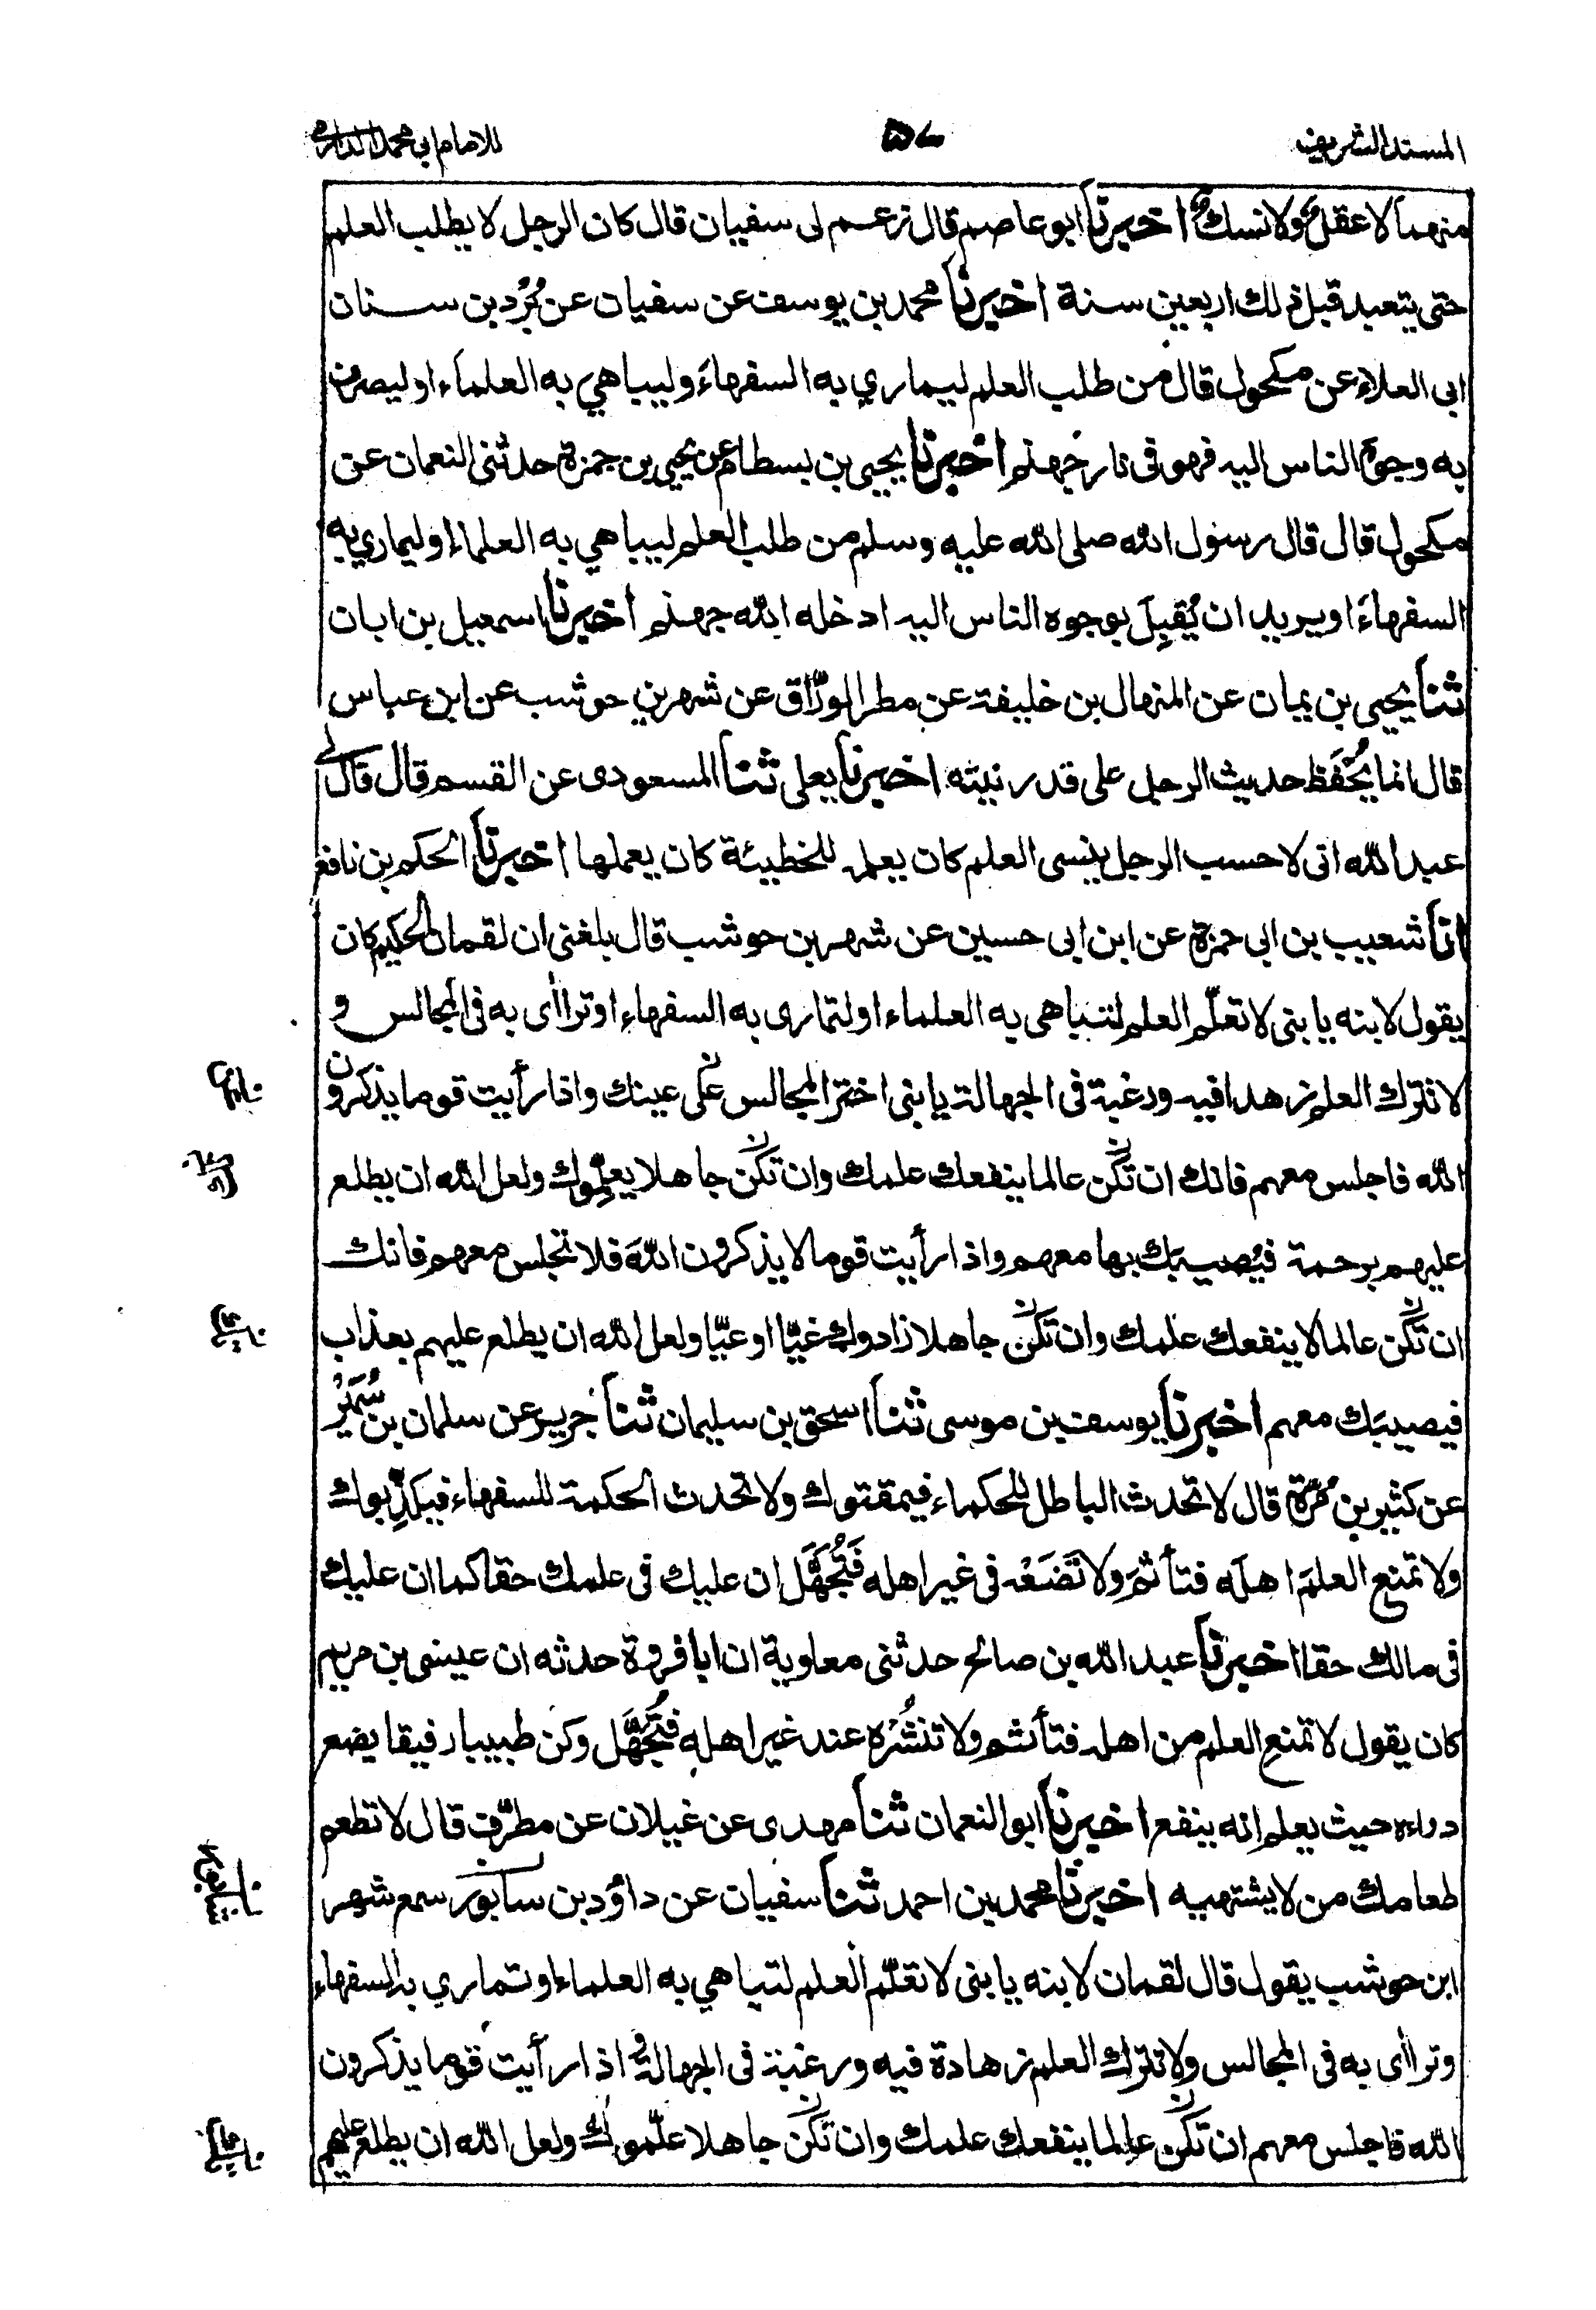 المسند الشريف ۵۷ للامام ابي محمد الدارمي
منهما لا عقلٌ ولا نسكٌ اخبرنا ابو عاصم قال زعم لى سفيان قال كان الرجل لا يطلب العلم
حتى يتعبد قبل ذلك اربعين سنة اخبرنا محمد بن يوسف عن سفيان عن بُرْد بن سنان
ابى العلاء عن مكحول قال من طلب العلم ليماري به السفهاءَ وليباهي به العلماءَ او ليصرف
به وجوهَ الناس اليه فهو فى نار جهنم اخبرنا يحيى بن بسطام عن يحيى بن حمزة حدثنى النعمان عن
مكحول قال قال رسول الله صلى الله عليه وسلم من طلب العلم ليباهي به العلماءَ او ليماري به
السفهاءَ او يريد ان يُقبِلَ بوجوه الناس اليه ادخله الله جهنم اخبرنا اسمعيل بن ابان
ثنا يحيى بن يمان عن المنهال بن خليفة عن مطر الورّاق عن شهر بن حوشب عن ابن عباس
قال انما يُحْفَظ حديث الرجل على قدر نيته اخبرنا يعلى ثنا المسعودى عن القسم قال قال لى
عبد الله انى لاحسب الرجل ينسى العلم كان يعلمه للخطيئة كان يعملها اخبرنا الحكم بن نافع
انا شعيب بن ابى حمزة عن ابن ابى حسين عن شهر بن حوشب قال بلغنى ان لقمان الحكيم كان
يقول لابنه يا بنى لا تعلّم العلم لتباهى به العلماء او لتمارى به السفهاءِ او تراأى به فى المجالس و
لا تترك العلم زهدا فيه ورغبة فى الجهالة يا بنى اختر المجالس على عينك واذا رأيت قوما يذكرون
الله فاجلس معهم فانك ان تكن عالما ينفعك علمك وان تكن جاهلا يعلّموك ولعل الله ان يطلع
عليهم برحمة فيُصيبَك بها معهم واذا رأيت قوما لا يذكرون اللهَ فلا تجلس معهم فانك
ان تكن عالما لا ينفعك علمك وان تكن جاهلا زادوك غيّا او عيّا ولعل الله ان يطلع عليهم بعذاب
فيصيبَك معهم اخبرنا يوسف بن موسى ثنا اسحق بن سليمان ثنا جرير عن سلمان بن سُمَيْر
عن كثير بن مُرّة قال لا تحدث الباطل للحكماء فيمقتوك ولا تحدث الحكمة للسفهاء فيكذّبوك
ولا تمنع العلمَ اهلَه فتأثمَ ولا تَضَعْه فى غير اهله فتُجَهَّل ان عليك فى علمك حقا كما ان عليك
فى مالك حقا اخبرنا عبد الله بن صالح حدثنى معاوية ان ابا فروة حدثه ان عيسى بن مريم
كان يقول لا تمنع العلم من اهله فتأثم ولا تنشُرْه عند غير اهله فتُجَهَّل وكن طبيبا رفيقا يضع
دواءه حيث يعلم انه ينفع اخبرنا ابو النعمان ثنا مهدى عن غيلان عن مطرّف قال لا تطعم
طعامك من لا يشتهيه اخبرنا محمد بن احمد ثنا سفيان عن داؤد بن سابور سمع شهر
ابن حوشب يقول قال لقمان لابنه يا بنى لا تعلّم العلم لتباهي به العلماء او تماري به السفهاء
وتراأى به فى المجالس ولا تترك العلم زهادة فيه ورغبة فى الجهالة و اذا رأيت قوما يذكرون
الله فاجلس معهم ان تكن عالما ينفعك علمك وان تكن جاهلا علّموك ولعل الله ان يطلع عليهم